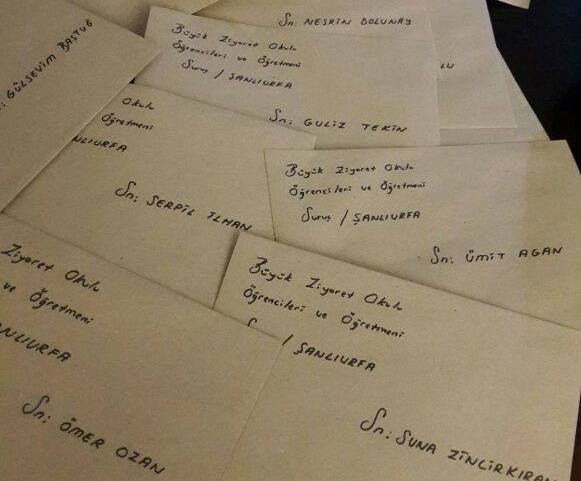 Sn: NESRİN DOLUNAY
Büyük Ziyaret Okulu
Öğrencileri ve Öğretmeni
Suruç / ŞANLIURFA
Sn: GULİZ TEKİN
LU
: GÜLSEVİM BAŞTUĞ
Okulu
Öğretmeni
NLIURFA
Sn: SERPİL İLHAN
Büyük Ziyaret Okulu
Öğrencileri ve Öğretmeni
Suruç / ŞANLIURFA
Sn: ÜMİT AGAN
Ziyaret Okulu
ve Öğretmeni
NLIURFA
Sn: ÖMER OZAN
Büyük Ziyaret Okulu
Öğrencileri ve Öğretmeni
/ ŞANLIURFA
Sn: SUNA ZİNCİRKIRAN